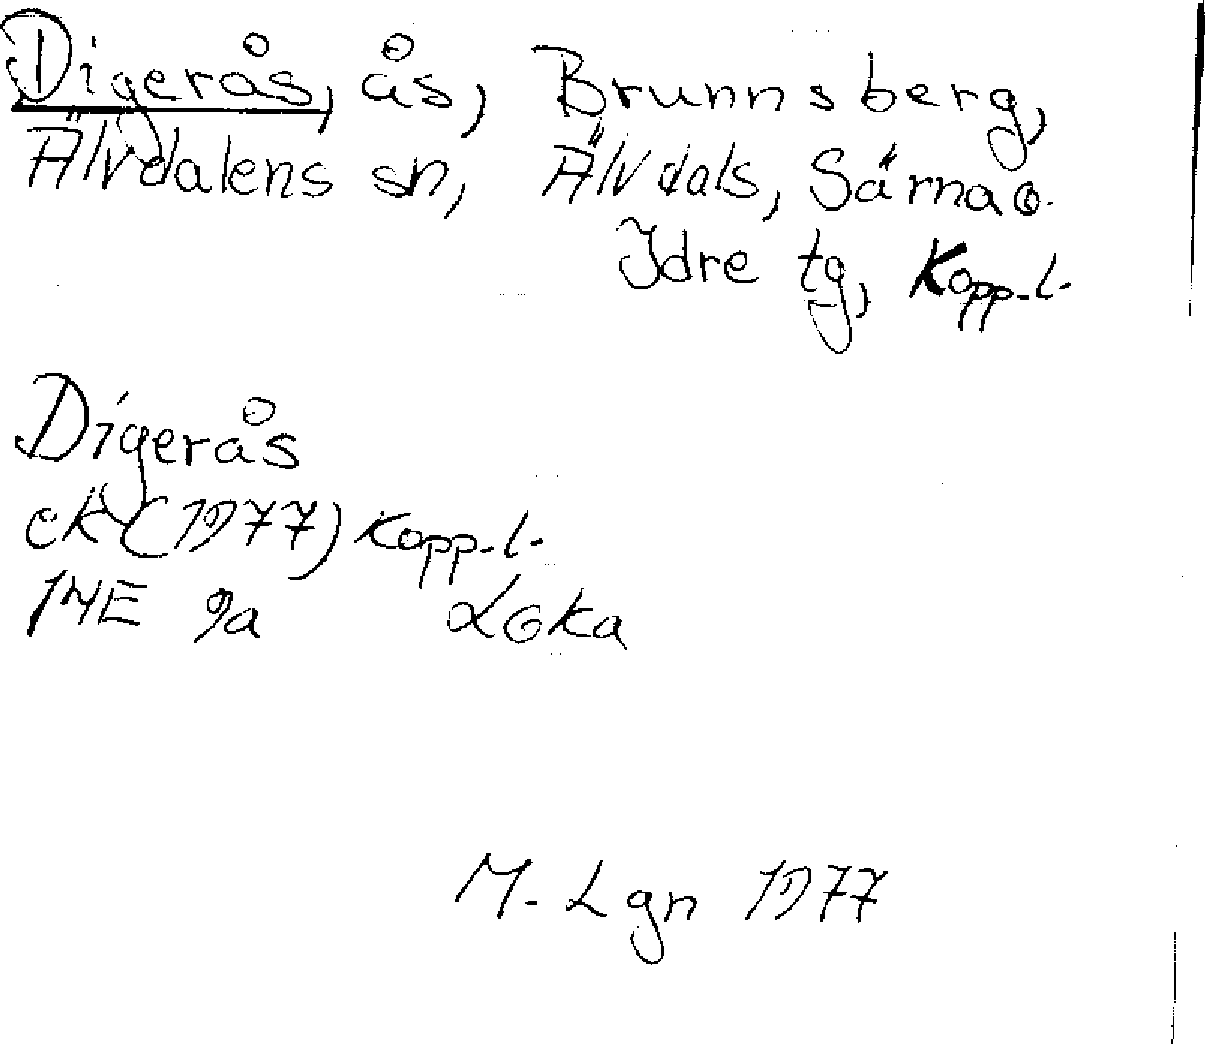 Digerås, ås, Brunnsberg,
Älvdalens sn, Älvdals, Särna o.
Idre tg, Kopp.l.
Digerås
ek (1977) Kopp.l.
14E 9a Loka
M. Lgn 1977